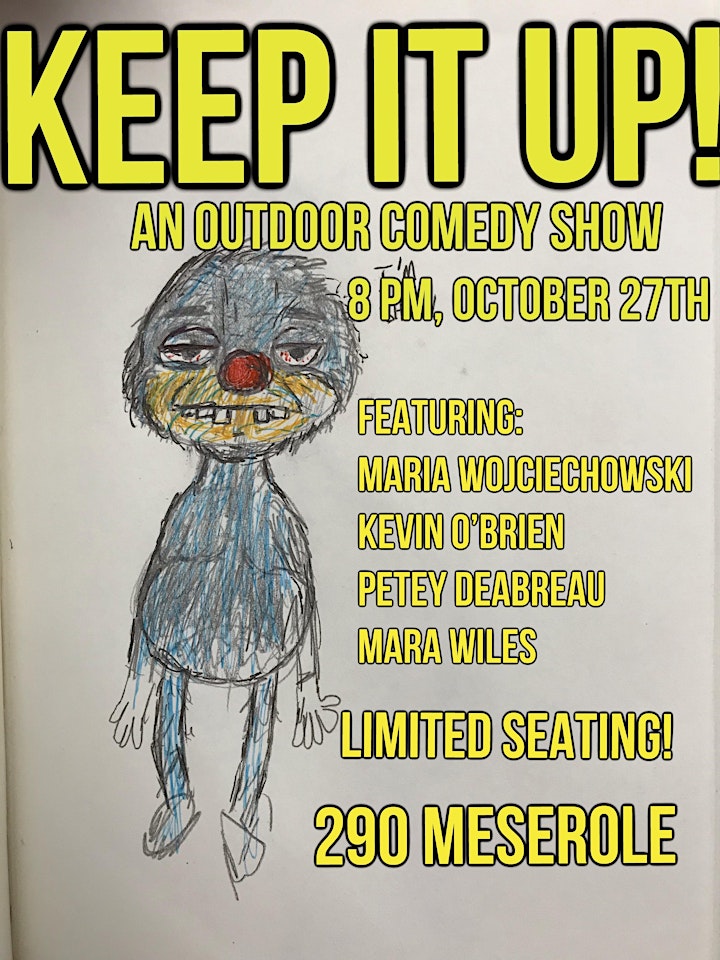 KEEP IT UP!
AN OUTDOOR COMEDY SHOW
I'M
8 PM, OCTOBER 27TH
FEATURING:
MARIA WOJCIECHOWSKI
KEVIN O'BRIEN
PETEY DEABREAU
MARA WILES
LIMITED SEATING!
290 MESEROLE